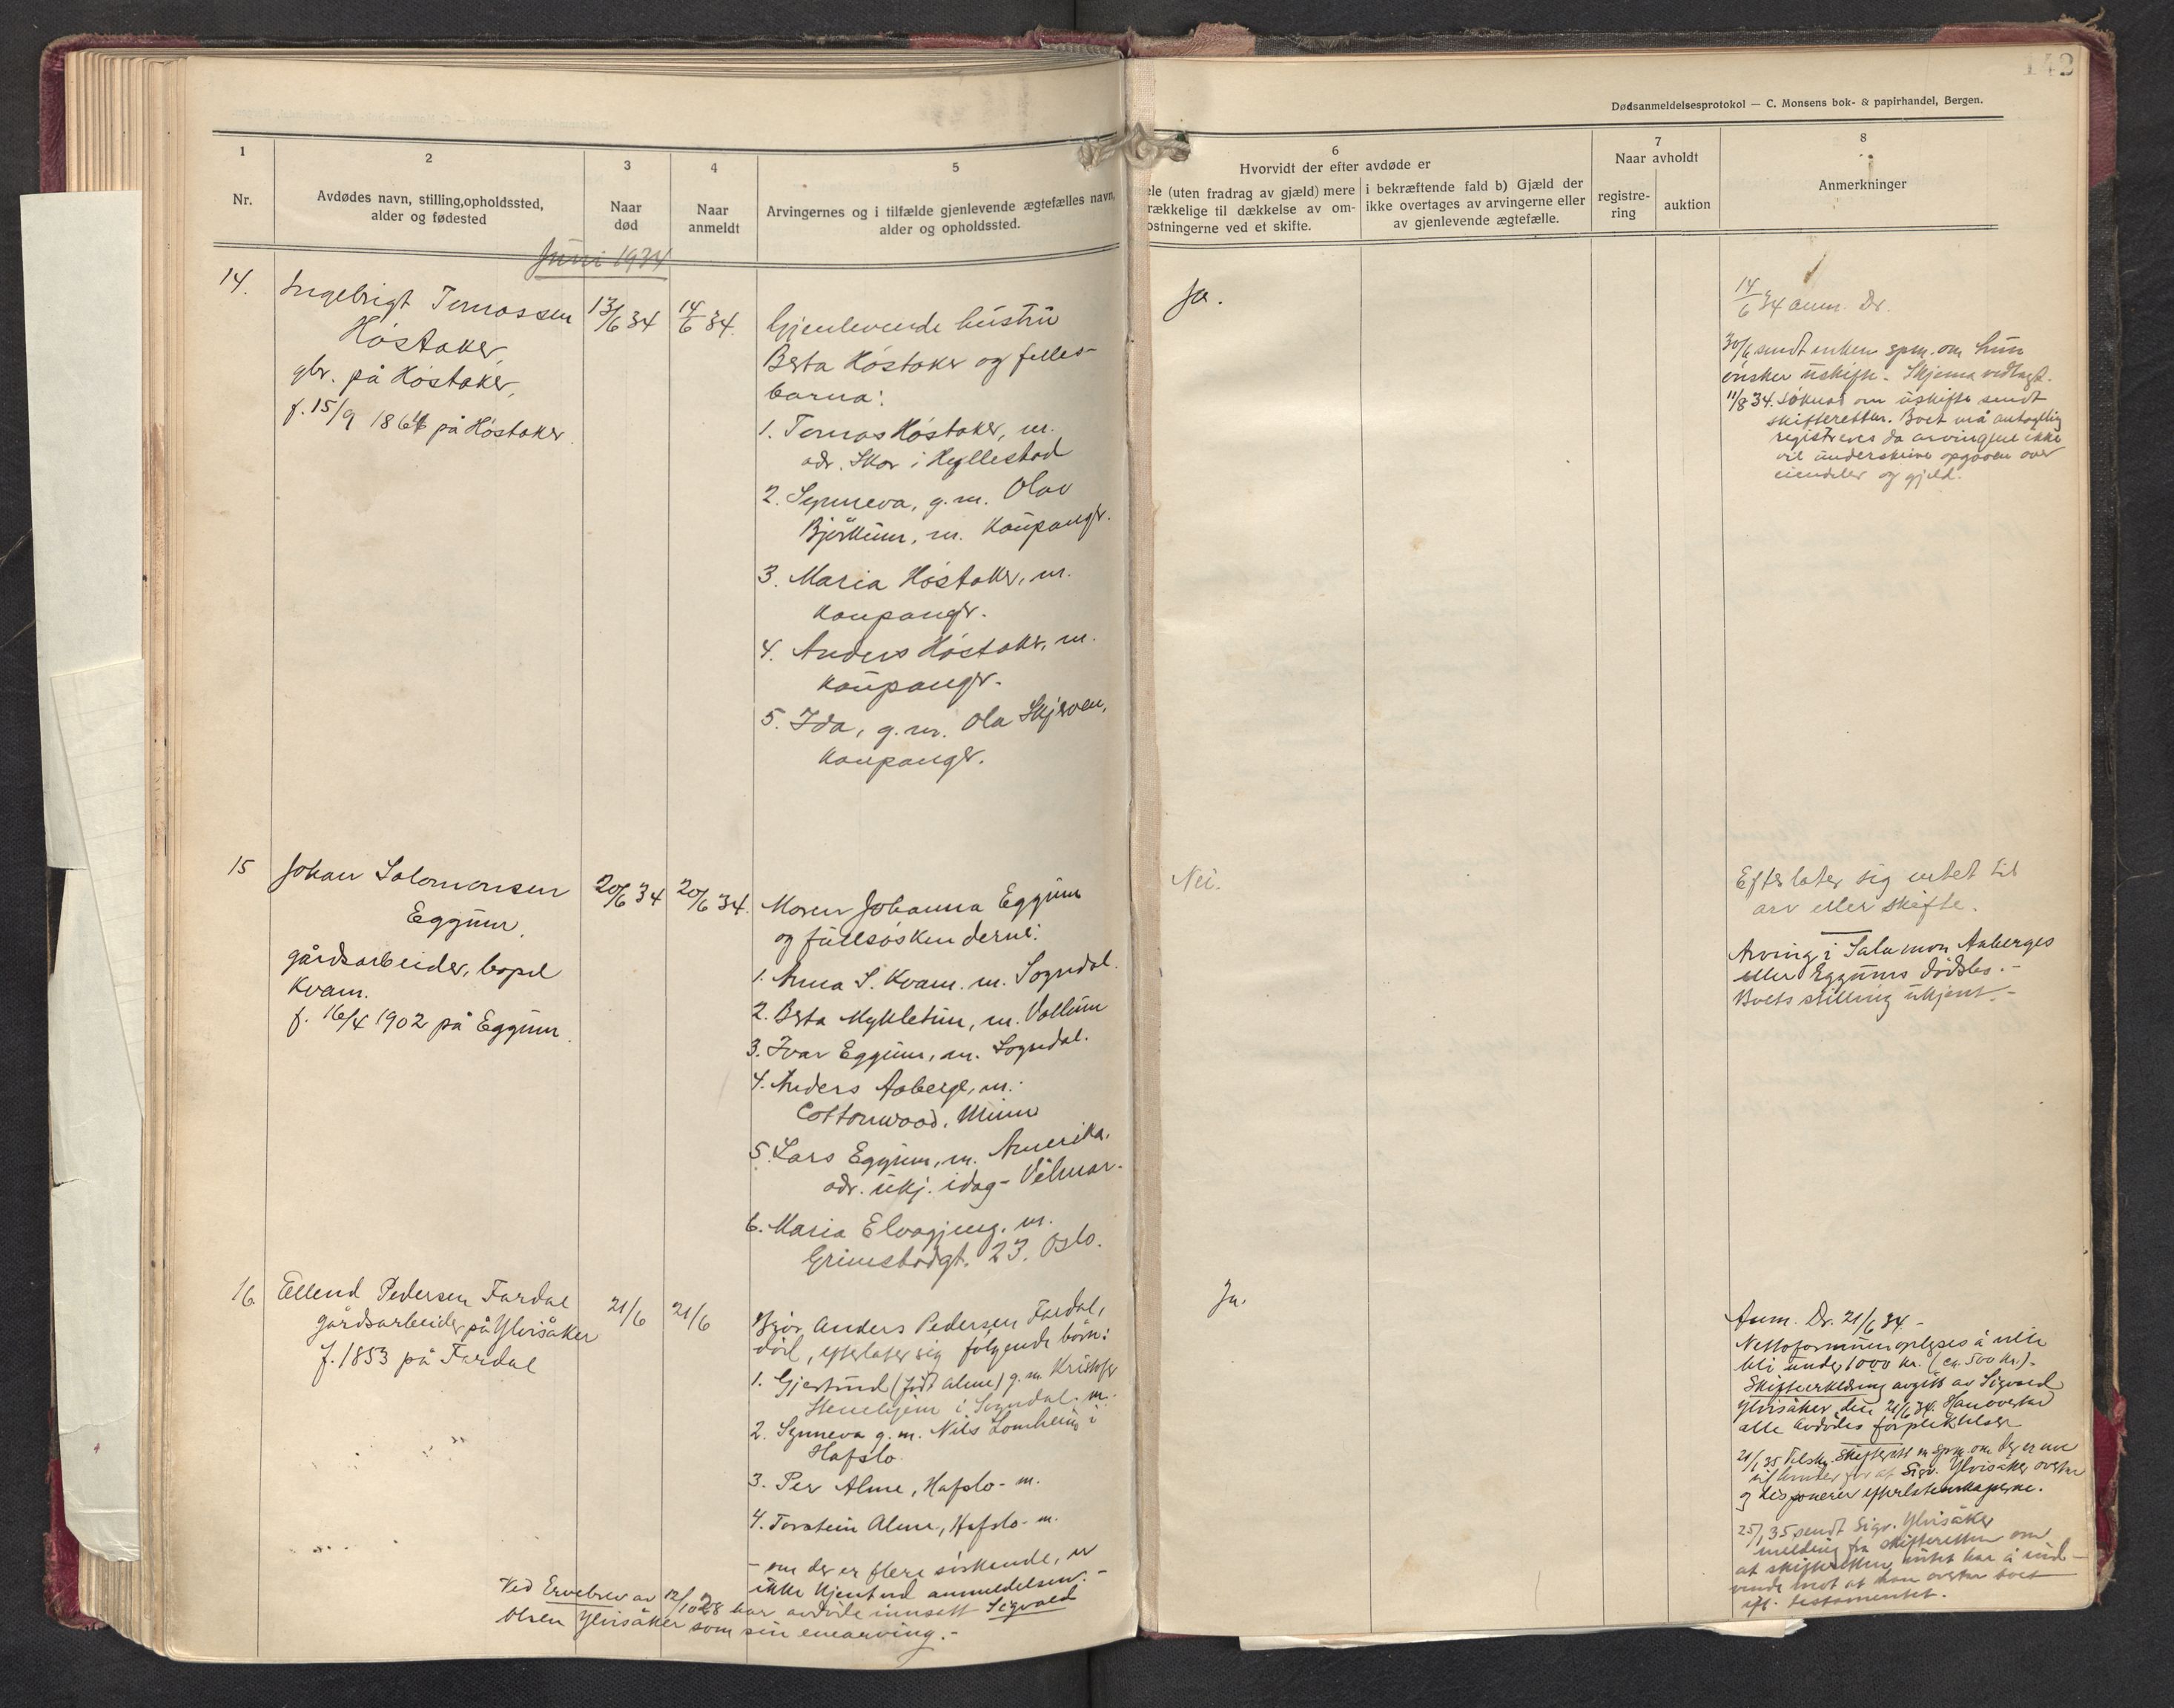 142
Dødsanmeldelsesprotokol — C. Monsens bok- & papirhandel, Bergen.
1
Nr.
2
Avdødes navn, stilling, opholdssted,
alder og fødested
3
Naar
død
4
Naar
anmeldt
5
Arvingernes og i tilfælde gjenlevende ægtefælles navn,
alder og opholdssted.
6
Hvorvidt der efter avdøde er
ele (uten fradrag av gjæld) mere
rækkelige til dækkelse av om-
ostningerne ved et skifte.
i bekræftende fald b) Gjæld der
ikke overtages av arvingerne eller
av gjenlevende ægtefælle.
7
Naar avholdt
registre-
ring
auktion
8
Anmerkninger
Juni 1934
14.
Ingebrigt Tomassen
Høstaker,
gbr. på Høstaker,
f. 15/9 1864 på Høstaker.
13/6 34
14/6 34.
Gjenlevende hustru
Berta Høstaker og felles-
barna:
1. Tomas Høstaker, m.
adr. Skor i Hyllestad
2. Synneva, g.m. Olav
Bjørkum, m. Kaupanger.
3. Maria Høstaker, m.
Kaupanger.
4. Anders Høstaker, m.
Kaupanger.
5. Ida, g.m. Ola Skjerven,
Kaupanger.
Ja.
14/6 34 anm. Dr.
30/6 sendt enken spm. om hun
ønsker uskifte. Skjema vedlagt.
11/8 34. Søknad om uskifte sendt
skifteretten. Boet må antagelig
registreres da arvingene ikke
vil underskrive opgaven over
eiendeler og gjeld.
15
Johan Salomonsen
Eggum,
gårdsarbeider, bopel
Kvam.
f. 16/4 1902 på Eggum.
20/6 34
20/6 34.
Moren Johanna Eggum
og fullsøskenderne:
1. Anna S. Kvam. m. Sogndal.
2. Berta Mykletun, m. Vallum
3. Ivar Eggum, m. Sogndal.
4. Anders Aaberge, m.
Cottonwood, Minn
5. Lars Eggum, m. Amerika,
adr. ukj. idag - Vilmar.
6. Maria Elvagjeng, m.
Grimstadgt. 23. Oslo.
Nei.
Efterlater sig intet til
arv eller skifte.
Arving i Salamon Aaberges
eller Eggums dødsbo. -
Boets stilling ukjent. -
16.
Ellend Pedersen Fardal
gårdsarbeider på Ylvisåker
f. 1853 på Fardal
21/6
21/6
Bror Anders Pedersen Fardal,
død, efterlater sig følgende børn:
1. Gjertrud (født Alme) g.m. Kristofer
Stenehjem i Sogndal. m.
2. Synneva g.m. Nils Lomheim i
Hafslo
3. Per Alme, Hafslo - m.
4. Torstein Alme, Hafslo - m.
- om der er flere søskende, er
ikke kjent ved anmeldelsen. -
Ved Ervebrev av 12/10 28 har avdøde innsatt Sigvald
Olsen Ylvisåker som sin enearving. -
Ja.
Anm. Dr. 21/6 34 -
Nettoformuen oplyses å ville
bli under 1000 kr. (ca. 500 kr.).
Skifteerklæring avgitt av Sigvald
Ylvisåker den 21/6 34. Han overtar
alle avdødes forpliktelser
21/1 35 Tilskr. skifterett m spm. om der er noe
til hinder for at Sigv. Ylvisåker overtar
og disponerer efterlatenskapene.
25/1 35 sendt Sigv. Ylvisåker
melding fra skifteretten om
at skifteretten intet har å ind-
vende mot at han overtar boet
ifl. testamentet.